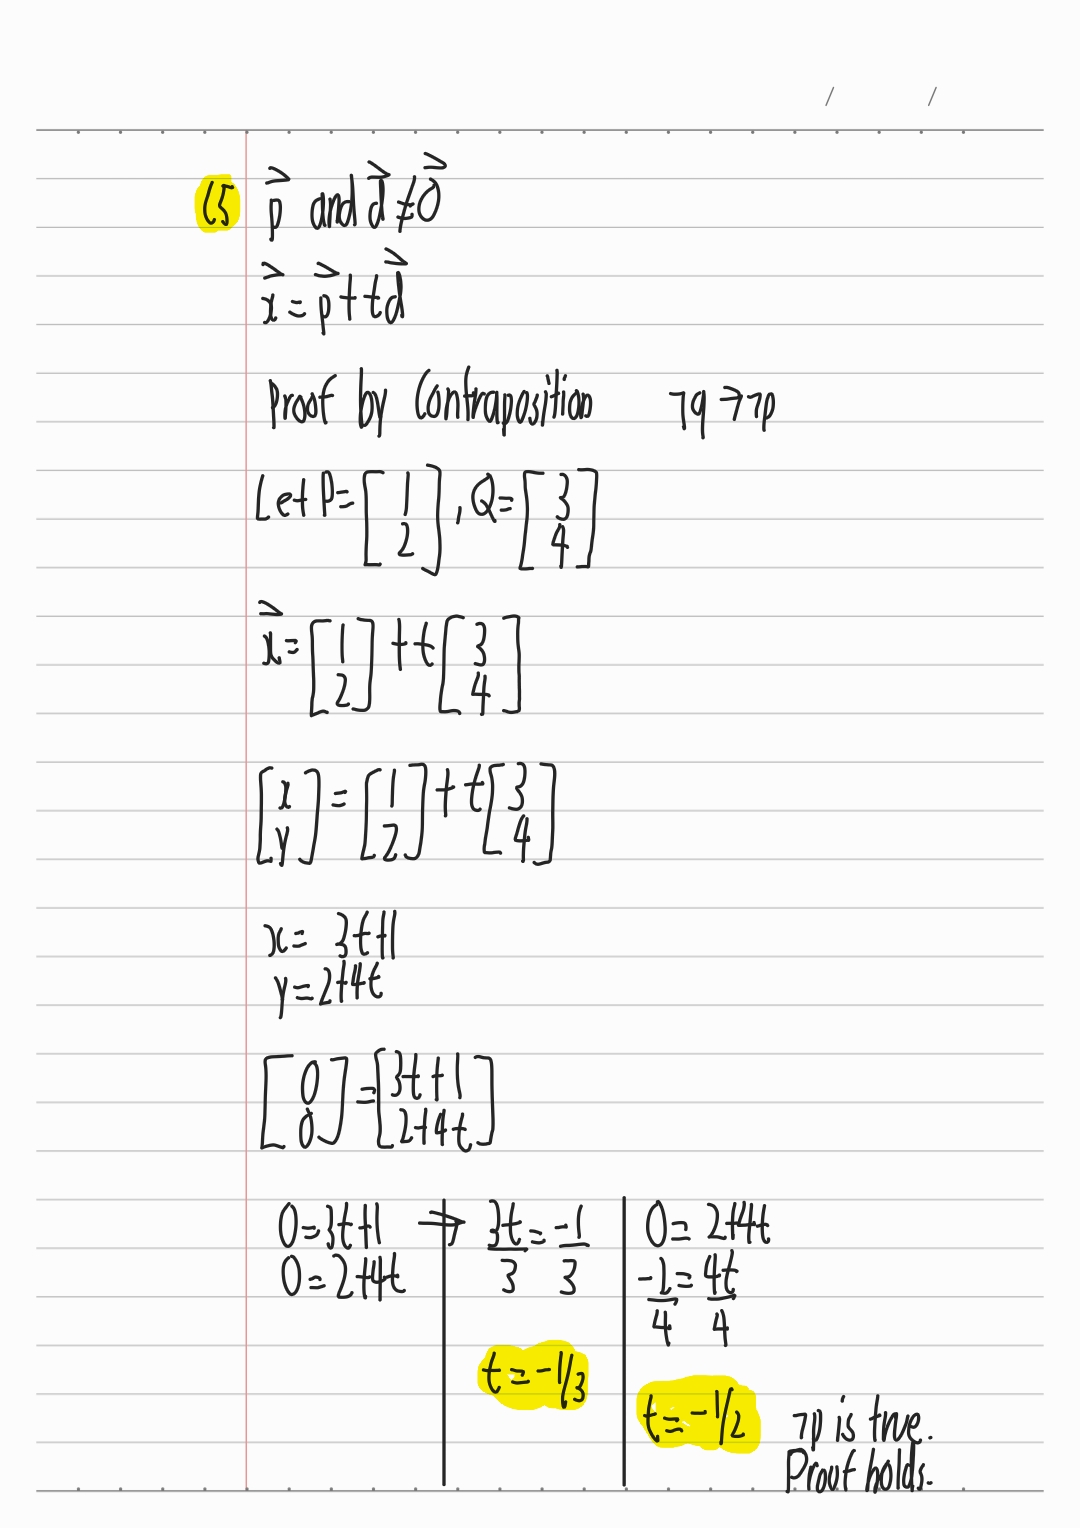 / /
15 p⃗ and d⃗ ≠ 0⃗
x⃗ = p⃗ + td⃗
Proof by Contraposition ¬q → ¬p
Let P = [1 2], Q = [3 4]
x⃗ = [1 2] + t [3 4]
[x y] = [1 2] + t [3 4]
x = 3t+1
y = 2+4t
[0 0] = [3t+1 2+4t]
0 = 3t+1 → 3t/3 = -1/3 0 = 2+4t
0 = 2+4t -2/4 = 4t/4
t = -1/3
t = -1/2 ¬p is true.
Proof holds.